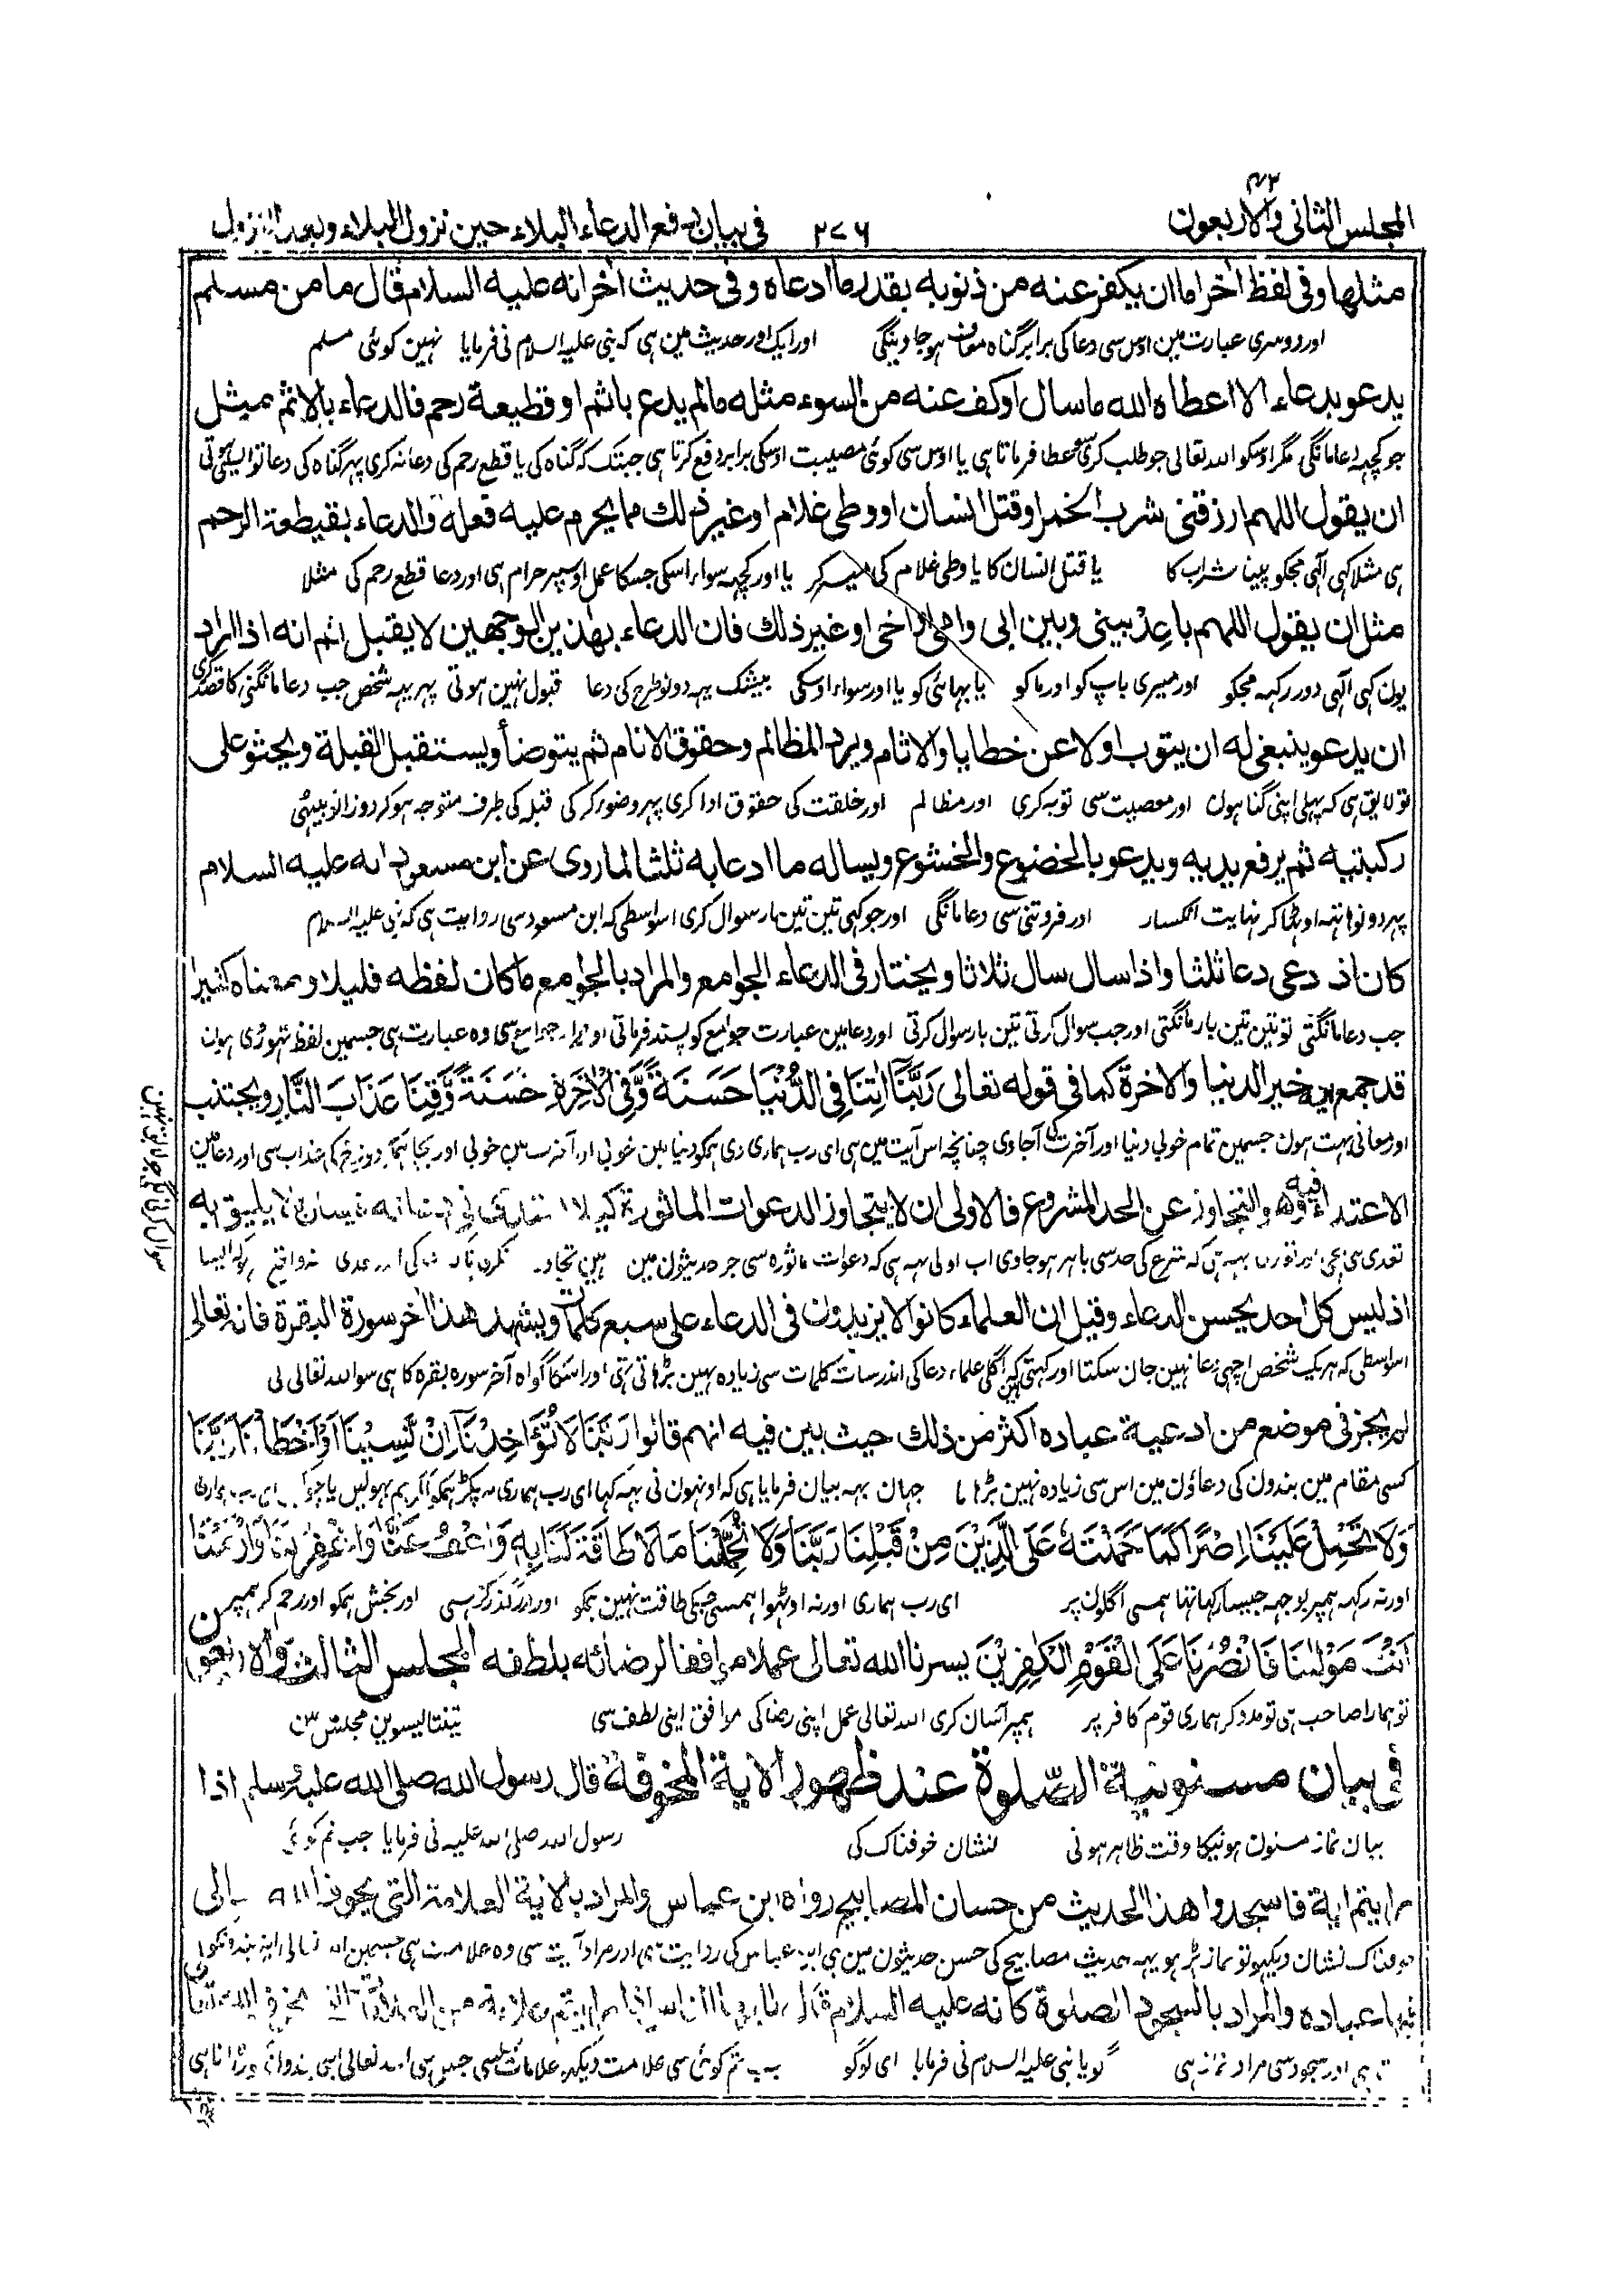 المجلس الثانی والاربعون
۲۷۶
فی بیان دفع الدعاء البلاء حین نزول البلاء وبعد النزول
مثلها وفی لفظ اخر اما ان یکفر عنه من ذنوبه بقدر ما ادعاه وفی حدیث اخر انه علیه السلام قال ما من مسلم
اور دوسری عبارت مین اوس سی دعا کی برابر گناه معاف ہو جاوینگی اور ایک اور حدیث مین ہی کہ نبی علیہ السلام نی فرمایا نہین کوئی مسلم
یدعو بدعاء الا اعطاه الله ما سال او کف عنه من السوء مثله ما لم یدع باثم او قطیعة رحم فالدعاء بالاثم بمیثل
جو کچہہ دعا مانگی مگر اوسکو اللہ تعالی جو طلب کری عطا فرماتا ہی یا اوس سی کوئی مصیبت اوسکی برابر دفع کرتا ہی جبتک کہ گناہ کی یا قطع رحم کی دعا نہ کری پہر گناہ کی دعا تو ایسی ہوتی
ان یقول اللهم ارزقنی شرب الخمر او قتل انسان او وطی غلام او غیر ذلك مما یحرم علیه فعله والدعاء بقیطعة الرحم
ہی مثلا کہی آلہی مجکو پینا شراب کا یا قتل انسان کا یا وطی غلام کی میسر کر یا اور کچہہ سواء اسکی جسکا عمل اوسپر حرام ہی اور دعا قطع رحم کی مثلا
مثل ان یقول اللهم باعد بینی وبین ابی وامی واخی او غیر ذلك فان الدعاء بهاذین الوجهین لا یقبل ثم انه اذا اراد
یون کہی آلہی دور رکہہ مجکو اور میری باپ کو اور ما کو یا بہائی کو یا اور سواء اوسکی بیشک یہہ دونو طرح کی دعا قبول نہین ہوتی پہر یہہ شخص جب دعا مانگنی کا قصد کری
ان یدعو ینبغی له ان یتوب اولا عن خطایا والاثام ویرد المظالم وحقوق الانام ثم یتوضأ ویستقبل القبلة ویجثو علی
تو لایق ہی کہ پہلی اپنی گناہون اور معصیت سی توبہ کری اور مظالم اور خلقت کی حقوق ادا کری پہر وضو کر کی قبلہ کی طرف متوجہ ہو کر دو زانو بیٹہی
رکبتیه ثم یرفع یدیه ویدعو بالخضوع والخشوع ویساله ما ادعا به ثلثا لما روی عن ابن مسعود انه علیه السلام
پہر دونو ہاتہہ اوٹہا کر نہایت انکسار اور فروتنی سی دعا مانگی اور جو کہی تین تین بار سوال کری اسواسطی کہ ابن مسعود سی روایت ہی کہ نبی علیہ السلام
کان اذ دعی دعا ثلثا واذا سال سال ثلاثا ویختار فی الدعاء الجوامع والمراد بالجوامع ما کان لفظه قلیلا ومعناه کثیرا
جب دعا مانگتی تو تین تین بار مانگتی اور جب سوال کرتی تین بار سوال کرتی اور دعا مین عبارت جوامع کو پسند فرماتی اور مراد جوامع سی وہ عبارت ہی جسمین لفظ تہوڑی ہون
قد جمع فیه خیر الدنیا والاخرة کما فی قوله تعالی رَبَّنَا اٰتِنَا فِی الدُّنْیَا حَسَنَةً وَّفِی الْاٰخِرَةِ حَسَنَةً وَّقِنَا عَذَابَ النَّارِ ویجتنب
اور معانی بہت ہون جسمین تمام خوبی دنیا اور آخرت کی آجاوی چنانچہ اس آیت مین ہی ای رب ہماری دی ہمکو دنیا مین خوبی اور آخرت مین خوبی اور بچا ہمکو دوزخ کی عذاب سی اور دعا مین
الاعتداء فیه وهو التجاوز عن الحد المشروع فالاولی ان لا یتجاوز الدعوات الماثورة کیلا
تعدی سی بچی اور تعدی یہہ ہی کہ شرع کی حد سی باہر ہو جاوی اب اولی یہہ ہی کہ دعوات ماثورہ سی جو حدیثون مین ہین تجاوز نکری
اذ لیس کل احد یحسن الدعاء وقیل ان العلماء کانوا لا یزیدون فی الدعاء علی سبع کلمات ویشهد هذا اخر سورة البقرة فانه تعالی
اسواسطی کہ ہر یک شخص اچہی دعا نہین جان سکتا اور کہتی ہین کہ اگلی علماء دعا کی اندر سات کلمات سی زیادہ نہین بڑہاتی تہی اور اسکا گواہ آخر سورہ بقرہ کا ہی سو اللہ تعالی نی
لم یجز فی موضع من ادعیة عباده اکثر من ذلك حیث بین فیه انهم قالوا رَبَّنَا لَا تُؤَاخِذْنَا اِنْ نَّسِیْنَا اَوْ اَخْطَأْنَا رَبَّنَا
کسی مقام مین بندون کی دعاؤن مین اس سی زیادہ نہین بڑہایا جہان یہہ بیان فرمایا ہی کہ اونہون نی یہہ کہا ای رب ہماری نہ پکڑ ہمکو اگر ہم بہولین یا چوکین ای رب ہماری
وَلَا تَحْمِلْ عَلَیْنَا اِصْرًا کَمَا حَمَلْتَهٗ عَلَی الَّذِیْنَ مِنْ قَبْلِنَا رَبَّنَا وَلَا تُحَمِّلْنَا مَا لَا طَاقَةَ لَنَا بِهٖ وَاعْفُ عَنَّا وَاغْفِرْ لَنَا وَارْحَمْنَا
اور نہ رکہہ ہمپر بوجہہ جیسا رکہا تہا ہمسی اگلون پر ای رب ہماری اور نہ اوٹہوا ہمسی جسکی طاقت نہین ہمکو اور درگذر کر ہمسی اور بخش ہمکو اور رحم کر ہمپر
اَنْتَ مَوْلٰىنَا فَانْصُرْنَا عَلَی الْقَوْمِ الْکٰفِرِیْنَ یسرنا الله تعالی عملا موافقا لرضائه بلطفه المجلس الثالث والاربعون
تو ہمارا صاحب ہی تو مدد کر ہماری قوم کافر پر ہمپر آسان کری اللہ تعالی عمل اپنی رضا کی موافق اپنی لطف سی تینتالیسوین مجلس مین
فی بیان مسنونیة الصلوة عند ظهور الایة المخوفة قال رسول الله صلی الله علیه وسلم اذا
بیان نماز مسنون ہونیکا وقت ظاہر ہونی نشان خوفناک کی رسول اللہ صلی اللہ علیہ نی فرمایا جب تم کوئی
رایتم ایة فاسجدوا هذا الحدیث من حسان المصابیح رواه ابن عباس والمراد بالایة العلامة التی یخوف الله تعالی
خوفناک نشان دیکہو تو نماز پڑہو یہہ حدیث مصابیح کی حسن حدیثون مین ہی ابن عباس کی روایت سی اور مراد آیت سی وہ علامت ہی جسمین اللہ تعالی اپنی بندونکو
بها عباده والمراد بالسجود الصلوة کانه علیه السلام قال
ہی اور سجود سی مراد نماز ہی گویا نبی علیہ السلام نی فرمایا ای لوگو جب تم کوئی سی علامت دیکہو علامات مین سی جس سی اللہ تعالی اپنی بندون کو ڈراتا ہی